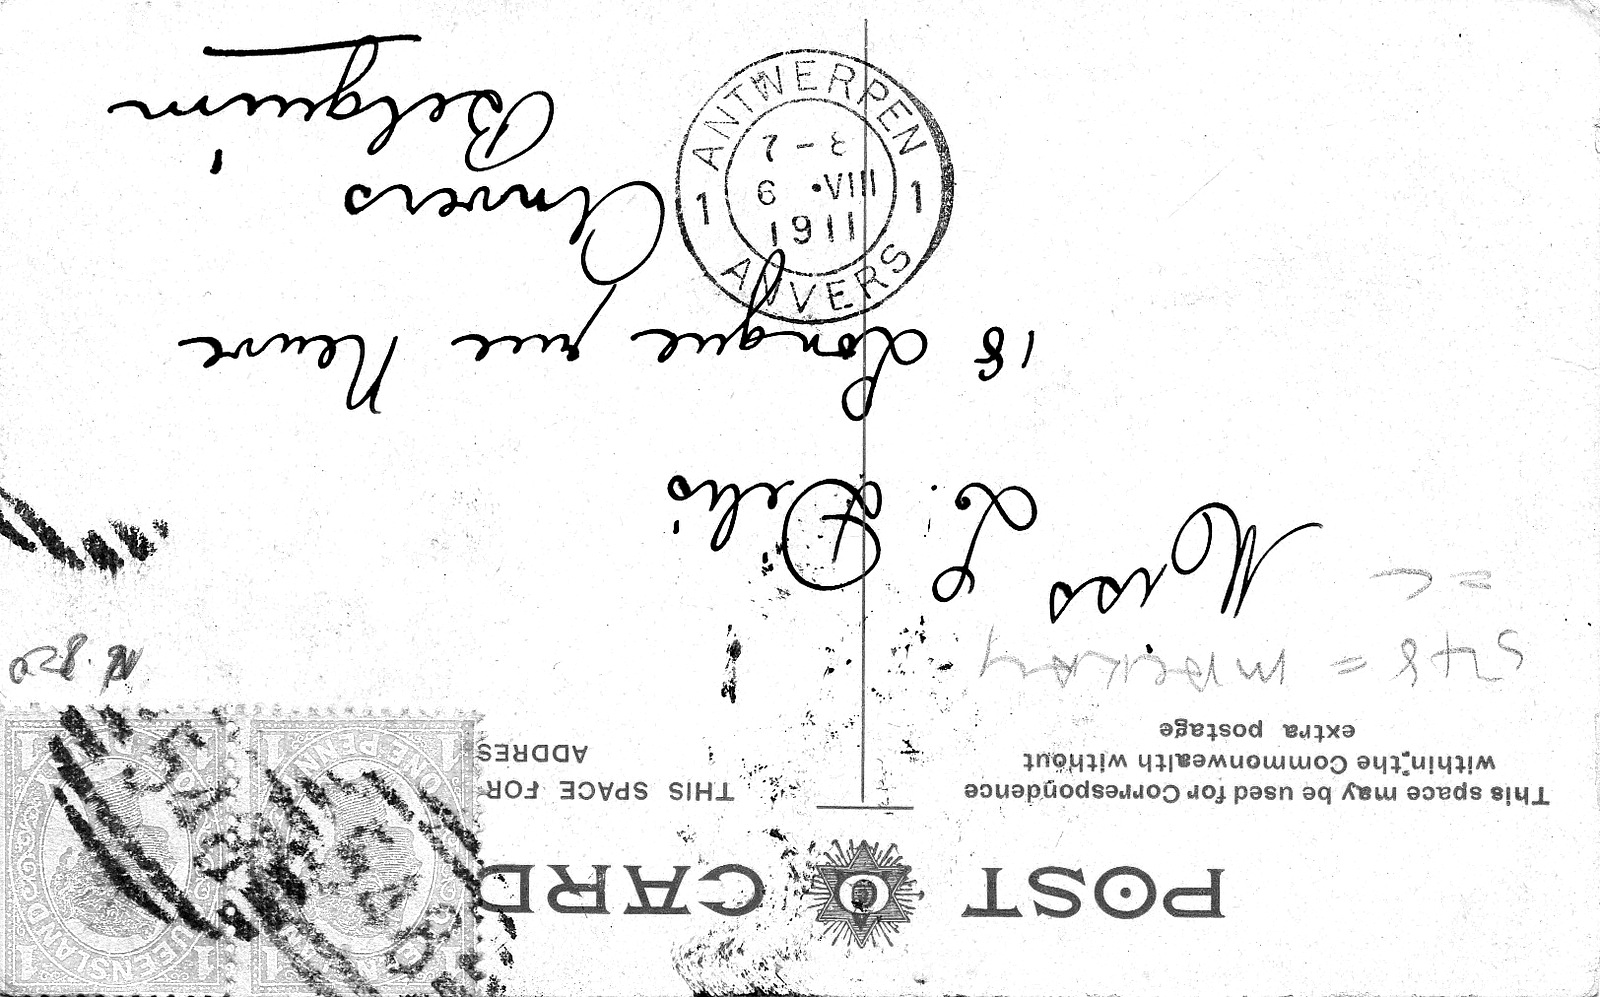 POST CARD
This space may be used for Correspondence
within the Commonwealth without
extra postage
THIS SPACE FOR
ADDRES
548 =
Miss L. Delis
18 Longue rue Neuve
Anvers
Belguim
ANTWERPEN
7 - 8
6 ·VIII
1911
1 1
ANVERS
QUEENSLAND
ONE PENNY
1 1
1 1